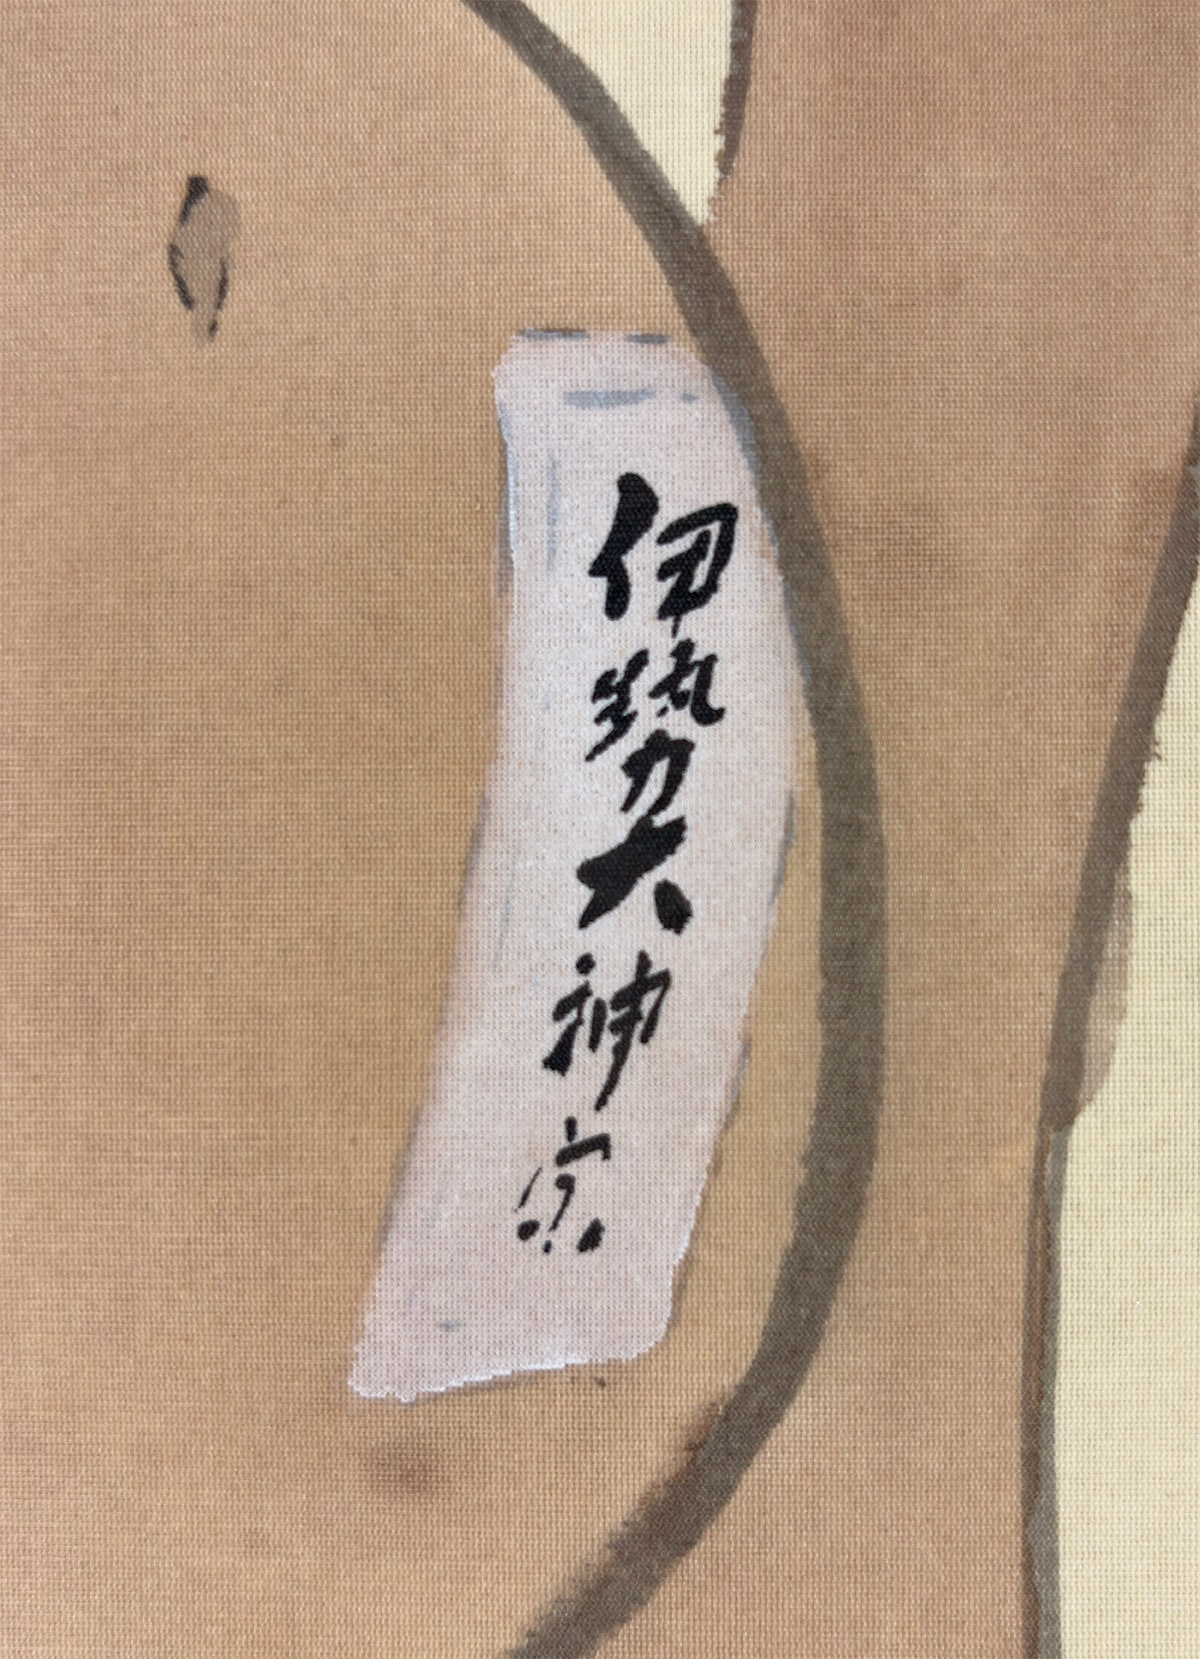 伊勢大神宗